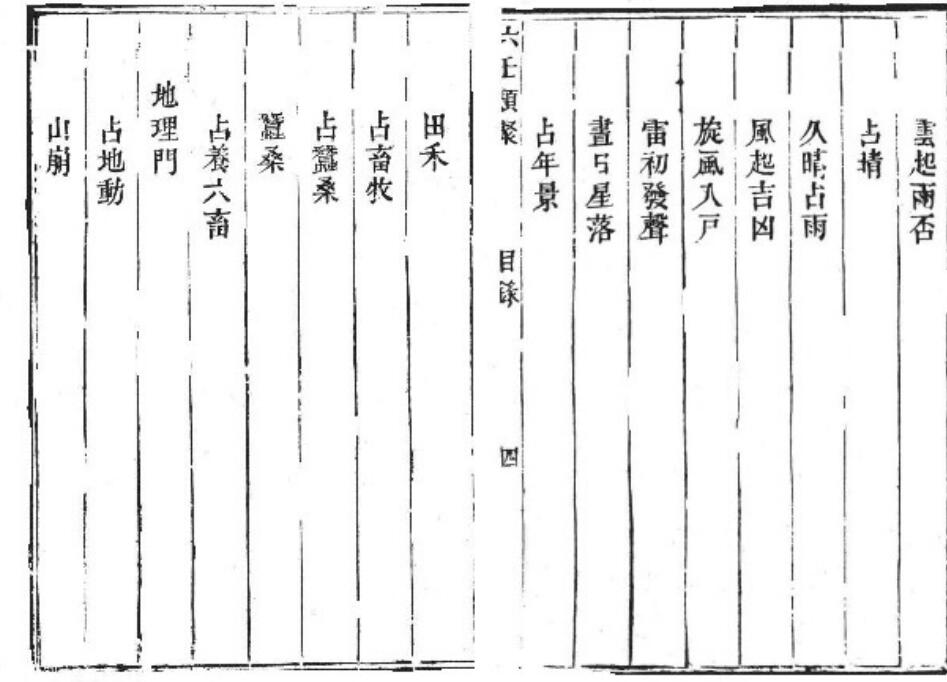 雲起雨否
占晴
久晴占雨
風起吉凶
旋風入戶
雷初發聲
晝占星落
占年景
六壬類聚
目錄
四
田禾
占畜牧
占蠶桑
蠶桑
占養六畜
地理門
占地動
山崩